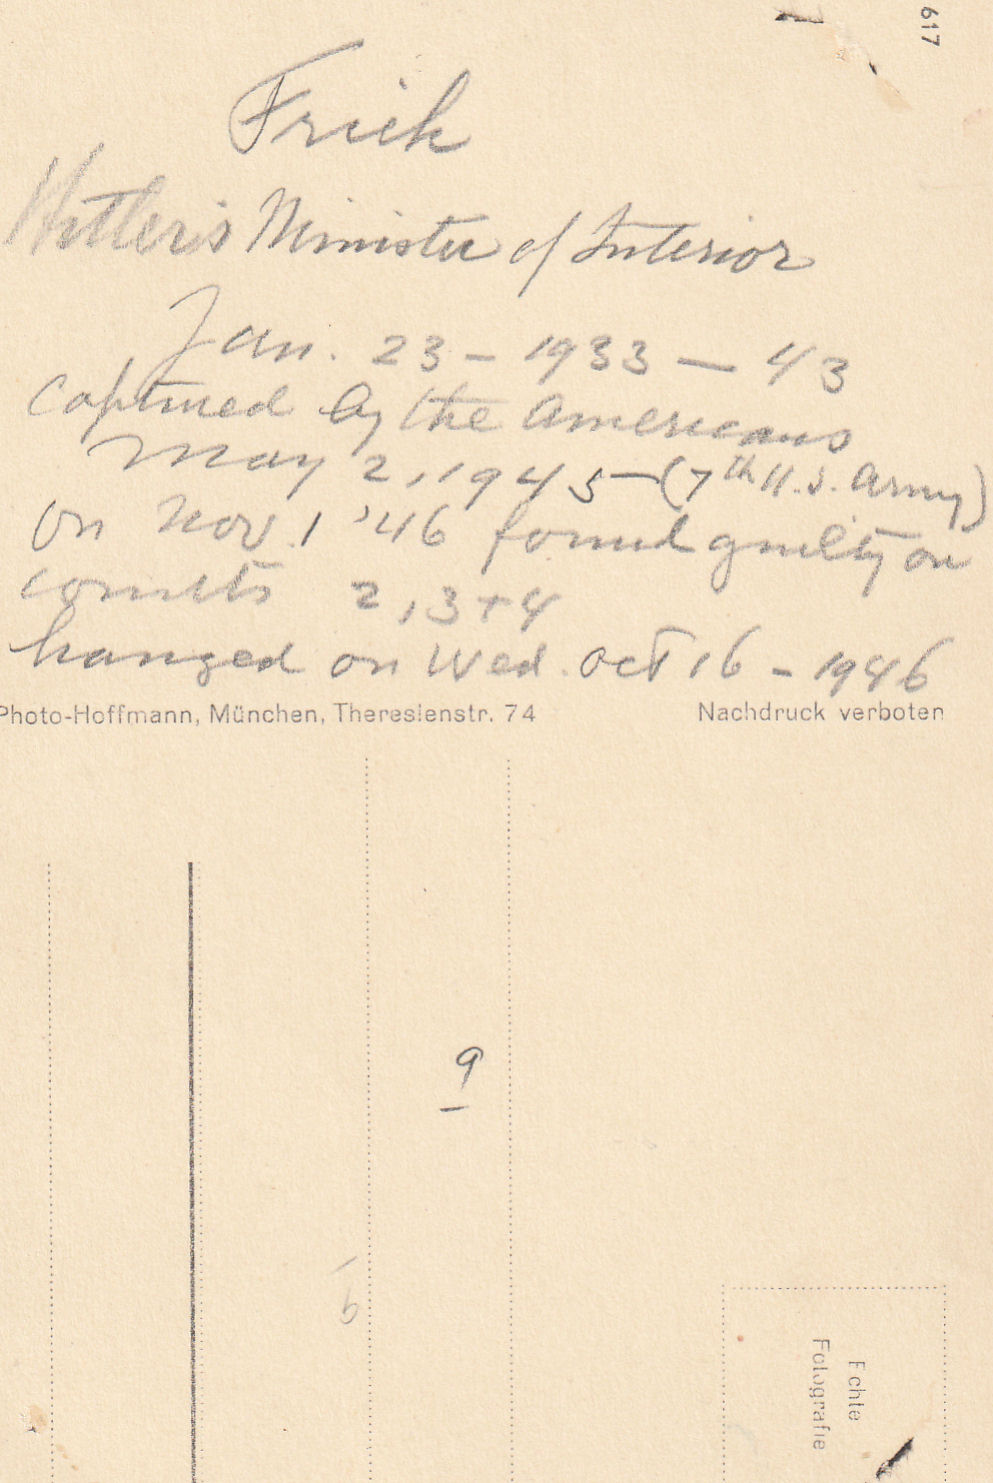 617
Frick
Hitler's Minister of Interior
Jan. 23 - 1933 - 43
Captured by the Americans
May 2, 1945 - (7th U.S. Army)
On Nov. 1, '46 found guilty on
counts 2, 3 + 4
hanged on Wed. Oct 16 - 1946
Photo-Hoffmann, München, Theresienstr. 74
Nachdruck verboten
9
6
Echte
Fotografie